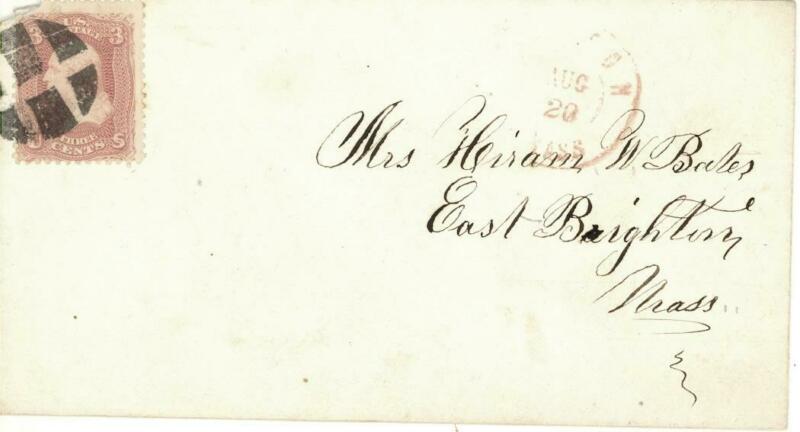 U.S.
POSTAGE
3 3
THREE
CENTS
AUG
20
MASS
Mrs Hiram W Bates
East Brighton
Mass.